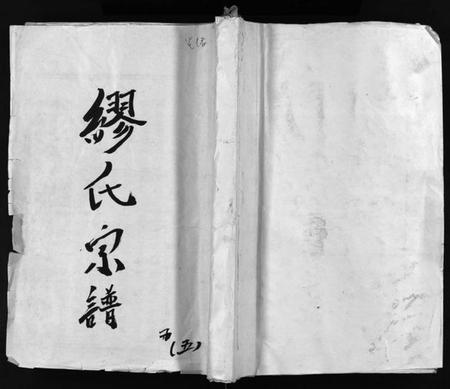 繆氏宗譜
(五)